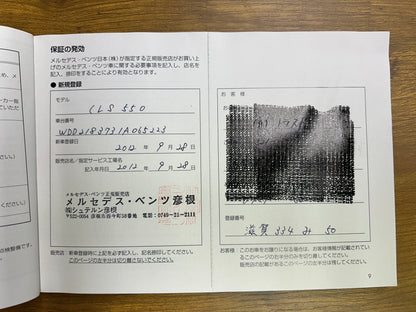 保証の発効
メルセデス・ベンツ日本(株)が指定する正規販売店がお買い上
げのメルセデス・ベンツ車に関する必要事項を記入し、店名を
記入、捺印をすることにより有効となります。
● 新規登録
モデル
CLS 550
車台番号
WDD2183731A065223
新車登録日
2012 年 9 月 28 日
販売店名／指定サービス工場名
記入年月日 2012 年 9 月 28 日
メルセデス・ベンツ正規販売店
メルセデス・ベンツ彦根
㈲シュテルン彦根
〒522-0054 彦根市西今町58番地 電話:0749-21-2111
販売店：新車登録時に上記を必ず記入し、記名捺印してください。
このページの左半分は切り離さないでください。
お 客 様
登録番号
滋賀 334 み 50
お客様：この自動車をお譲りになる場合は、お客様情報が記載されてい
るこのページの右半分のみを切り取ってください。
販売店の記載があるこのページの左半分は残してください。
9